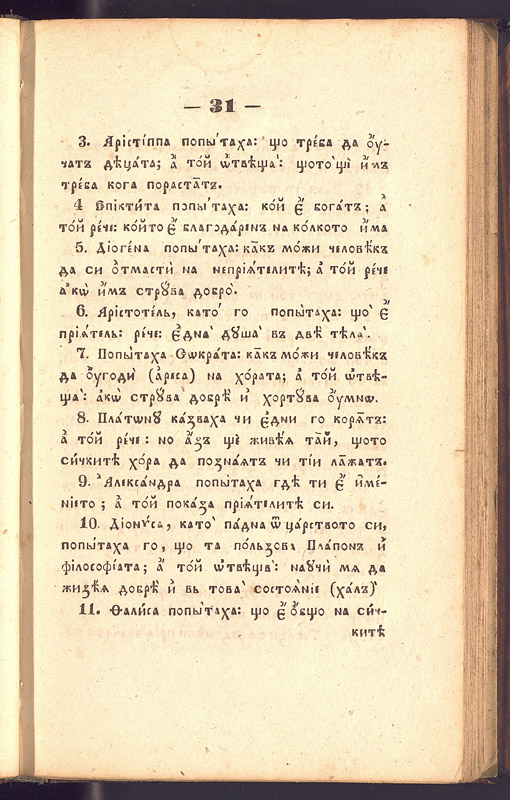 — 31 —
3. Арістíппа попы́таха: що трéба да оу҆-
чатъ дѣцáта; а҆ тóй ѿвѣща̀: щото́ щѐ и҆мъ
трéба кога порастáтъ.
4 Епіктúта попы́таха: кóй є҆ богáтъ; а҆
тóй рéче: кóйто є҆ благодáренъ на кóлкото и҆ма
5. Діогéна попы́таха: кáкъ мóжи человѣ́къ
да си ѻ҆тмастѝ на непрія́телитѣ; а҆ тóй рéче
а҆кѡ̀ и҆мъ стрꙋ́ва добрò.
6. Арістотéль, като̀ го попы́таха: що̀ є҆
прія́тель: рéче: є҆дна̀ дꙋша̀ въ двѣ̀ тѣла̀.
7. Попы́таха Сѡкрáта: кáкъ мóжи человѣ́къ
да оу҆годѝ (а҆рéса) на хóрата; а҆ тóй ѿвѣ-
ща̀: а҆кѡ̀ стрꙋ́ва добрѣ̀ и҆ хортꙋ́ва оу҆мнѡ.
8. Плáтѡнꙋ кáзваха чи є҆дни го корѧ́тъ:
а҆ тóй рéче: но а҆зъ щѐ живѣ́ѧ тáй, щото
сúчкитѣ хóра да познáѧтъ чи тíи лáжатъ.
9. Александра попы́таха гдѣ̀ ти є҆ и҆мѣ́-
ніето; а҆ тóй покáза прія́телитѣ си.
10. Діонѵ́са, като̀ пáдна ѿ цáрството си,
попы́таха го, що та пóлзова Платонъ и҆
філосо́фіата; а҆ тóй ѿвѣща̀: наꙋчѝ мѧ да
жизѣ́ѧ добрѣ̀ и҆ вь това̀ состоѧ́ніе (хáлъ)
11. Ѳалúса попы́таха: що є҆ ѻ҆бщо на сúч-
китѣ